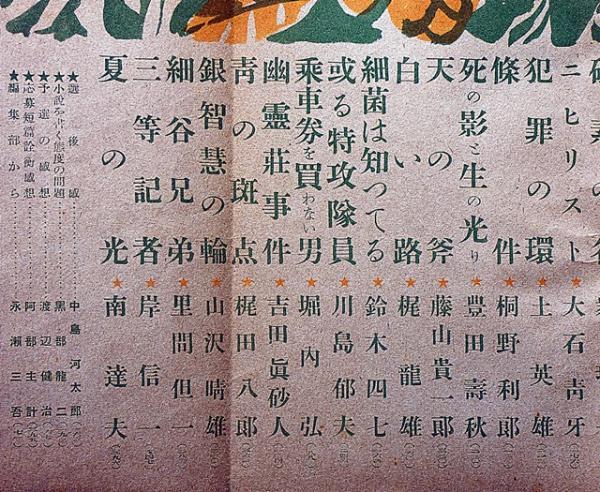 ニヒリスト★大石青牙
犯罪の環★土英雄
條件★桐野利郎
死の影と生の光り★豊田壽秋
天の斧★藤山貴一郎
白い路★梶龍雄
細菌は知つてる★鈴木四七
或る特攻隊員★川島郁夫
乘車券を買わない男★堀内弘
幽靈莊事件★吉田眞砂人
靑の斑点★梶田八郎
銀智慧の輪★山沢晴雄
細谷兄弟★里間但一
三等記者★岸信一
夏の光★南達夫
★選後感……中島河太郎
★小説を書く態度の問題……黒部龍二
★予選の感想……渡辺健治
★応募短篇詮衡感想……阿部主計
★編集部から……永瀬三吾